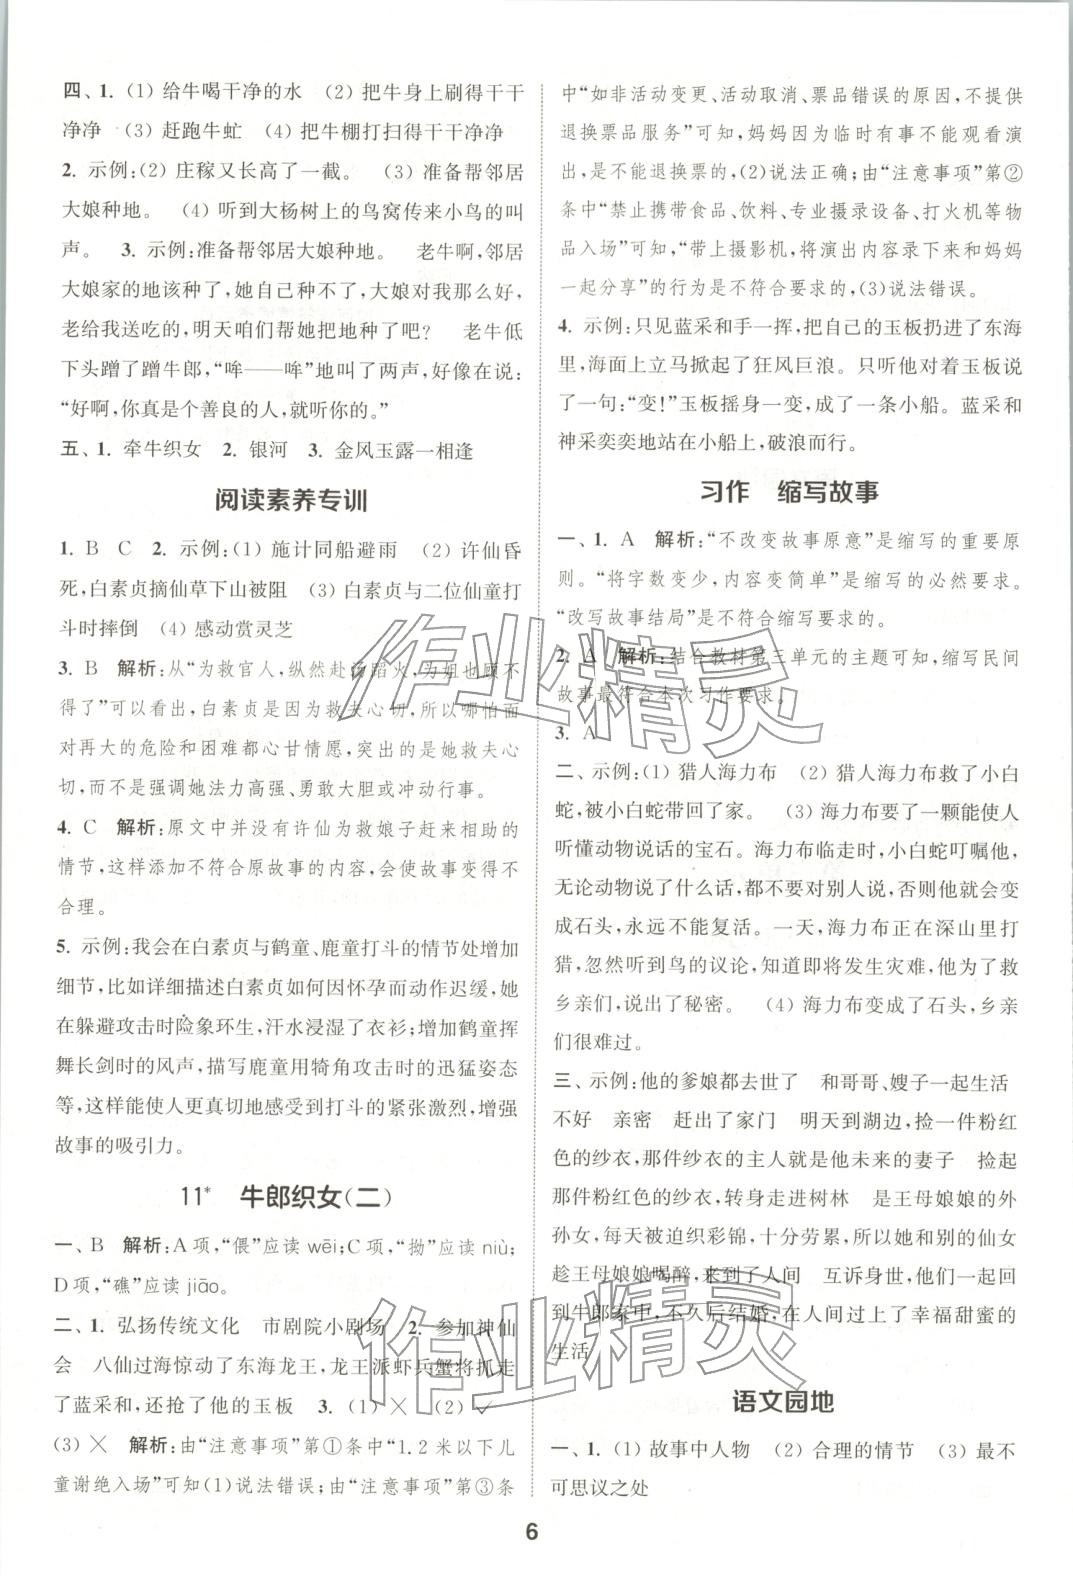 四、1. (1) 给牛喝干净的水 (2) 把牛身上刷得干干
净净 (3) 赶跑牛虻 (4) 把牛棚打扫得干干净净
2. 示例:(2) 庄稼又长高了一截。 (3) 准备帮邻居
大娘种地。 (4) 听到大杨树上的鸟窝传来小鸟的叫
声。 3. 示例:准备帮邻居大娘种地。 老牛啊,邻居
大娘家的地该种了,她自己种不了,大娘对我那么好,
老给我送吃的,明天咱们帮她把地种了吧? 老牛低
下头蹭了蹭牛郎,“哞——哞”地叫了两声,好像在说:
“好啊,你真是个善良的人,就听你的。”
五、1. 牵牛织女 2. 银河 3. 金风玉露一相逢
阅读素养专训
1. B C 2. 示例:(1) 施计同船避雨 (2) 许仙昏
死,白素贞摘仙草下山被阻 (3) 白素贞与二位仙童打
斗时摔倒 (4) 感动赏灵芝
3. B 解析:从“为救官人,纵然赴汤蹈火,为姐也顾不
得了”可以看出,白素贞是因为救夫心切,所以哪怕面
对再大的危险和困难都心甘情愿,突出的是她救夫心
切,而不是强调她法力高强、勇敢大胆或冲动行事。
4. C 解析:原文中并没有许仙为救娘子赶来相助的
情节,这样添加不符合原故事的内容,会使故事变得不
合理。
5. 示例:我会在白素贞与鹤童、鹿童打斗的情节处增加
细节,比如详细描述白素贞如何因怀孕而动作迟缓,她
在躲避攻击时险象环生,汗水浸湿了衣衫;增加鹤童挥
舞长剑时的风声,描写鹿童用犄角攻击时的迅猛姿态
等,这样能使人更真切地感受到打斗的紧张激烈,增强
故事的吸引力。
11* 牛郎织女(二)
一、B 解析:A项,“偎”应读 wēi;C项,“拗”应读 niù;
D项,“礁”应读 jiāo。
二、1. 弘扬传统文化 市剧院小剧场 2. 参加神仙
会 八仙过海惊动了东海龙王,龙王派虾兵蟹将抓走
了蓝采和,还抢了他的玉板 3. (1) ╳ (2) ✓
(3) ╳ 解析:由“注意事项”第①条中“1.2米以下儿
童谢绝入场”可知(1)说法错误;由“注意事项”第③条
中“如非活动变更、活动取消、票品错误的原因,不提供
退换票品服务”可知,妈妈因为临时有事不能观看演
出,是不能退换票的,(2)说法正确;由“注意事项”第②
条中“禁止携带食品、饮料、专业摄录设备、打火机等物
品入场”可知,“带上摄影机,将演出内容录下来和妈妈
一起分享”的行为是不符合要求的,(3)说法错误。
4. 示例:只见蓝采和手一挥,把自己的玉板扔进了东海
里,海面上立马掀起了狂风巨浪。只听他对着玉板说
了一句:“变!”玉板摇身一变,成了一条小船。蓝采和
神采奕奕地站在小船上,破浪而行。
习作 缩写故事
一、1. A 解析:“不改变故事原意”是缩写的重要原
则。“将字数变少,内容变简单”是缩写的必然要求。
“改写故事结局”是不符合缩写要求的。
2. A 解析:结合教材第三单元的主题可知,缩写民间
故事最符合本次习作要求。
3. A
二、示例:(1) 猎人海力布 (2) 猎人海力布救了小白
蛇,被小白蛇带回了家。 (3) 海力布要了一颗能使人
听懂动物说话的宝石。海力布临走时,小白蛇叮嘱他,
无论动物说了什么话,都不要对别人说,否则他就会变
成石头,永远不能复活。一天,海力布正在深山里打
猎,忽然听到鸟的议论,知道即将发生灾难,他为了救
乡亲们,说出了秘密。 (4) 海力布变成了石头,乡亲
们很难过。
三、示例:他的爹娘都去世了 和哥哥、嫂子一起生活
不好 亲密 赶出了家门 明天到湖边,捡一件粉红
色的纱衣,那件纱衣的主人就是他未来的妻子 捡起
那件粉红色的纱衣,转身走进树林 是王母娘娘的外
孙女,每天被迫织彩锦,十分劳累,所以和别的仙女
趁王母娘娘喝醉,来到了人间 互诉身世,他们一起回
到牛郎家中,不久后结婚,在人间过上了幸福甜蜜的
生活
语文园地
一、1. (1) 故事中人物 (2) 合理的情节 (3) 最不
可思议之处
6
作业精灵
作业精灵